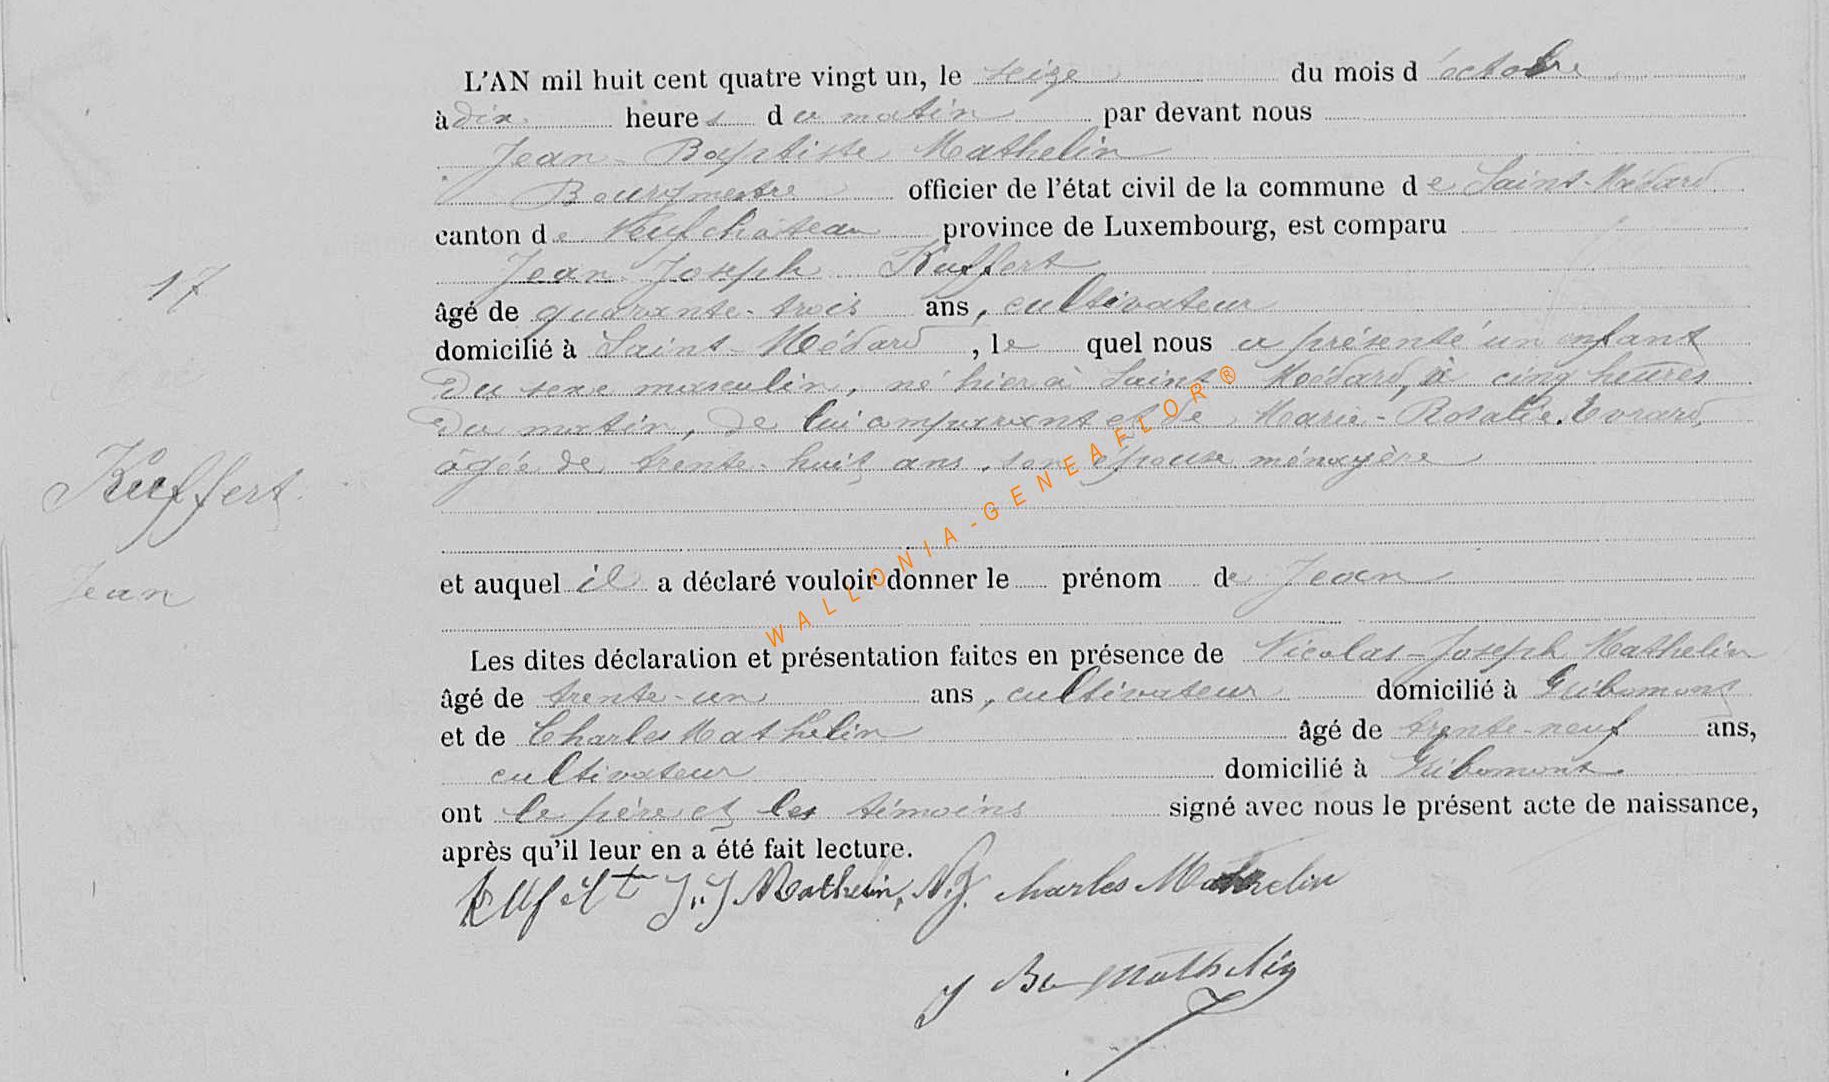 L'AN mil huit cent quatre vingt un, le seize du mois d'octobre
à dix heures du matin par devant nous
Jean-Baptiste Mathelin
Bourgmestre officier de l'état civil de la commune de Saint-Médard
canton de Neufchâteau province de Luxembourg, est comparu
Jean-Joseph Kuffert
17
âgé de quarante-trois ans, cultivateur
domicilié à Saint-Médard, lequel nous a présenté un enfant
du sexe masculin, né hier à Saint-Médard, à cinq heures
du matin, de lui comparant et de Marie-Rosalie Evrard,
âgée de trente-huit ans, son épouse ménagère
Kuffert
Jean
et auquel il a déclaré vouloir donner le prénom de Jean
Les dites déclaration et présentation faites en présence de Nicolas-Joseph Mathelin
âgé de trente-un ans, cultivateur domicilié à Gribomont
et de Charles Mathelin âgé de trente-neuf ans,
cultivateur domicilié à Gribomont.
ont le père et les témoins signé avec nous le présent acte de naissance,
après qu'il leur en a été fait lecture.
Mathelin, N.J. Charles Mathelin
J Bte Mathelin
WALLONIA-GENEAFLOR®